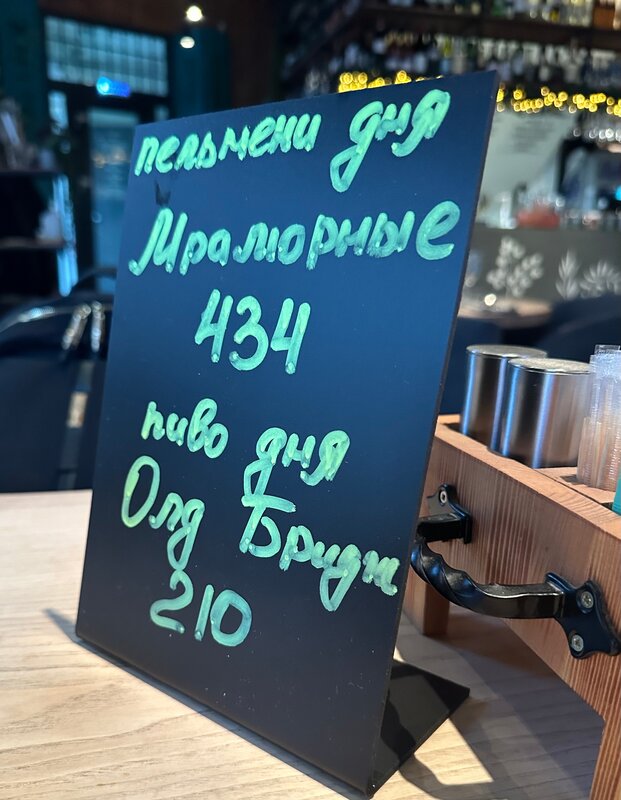 пельмени дня
Мраморные
434
пиво дня
Олд Бридж
210